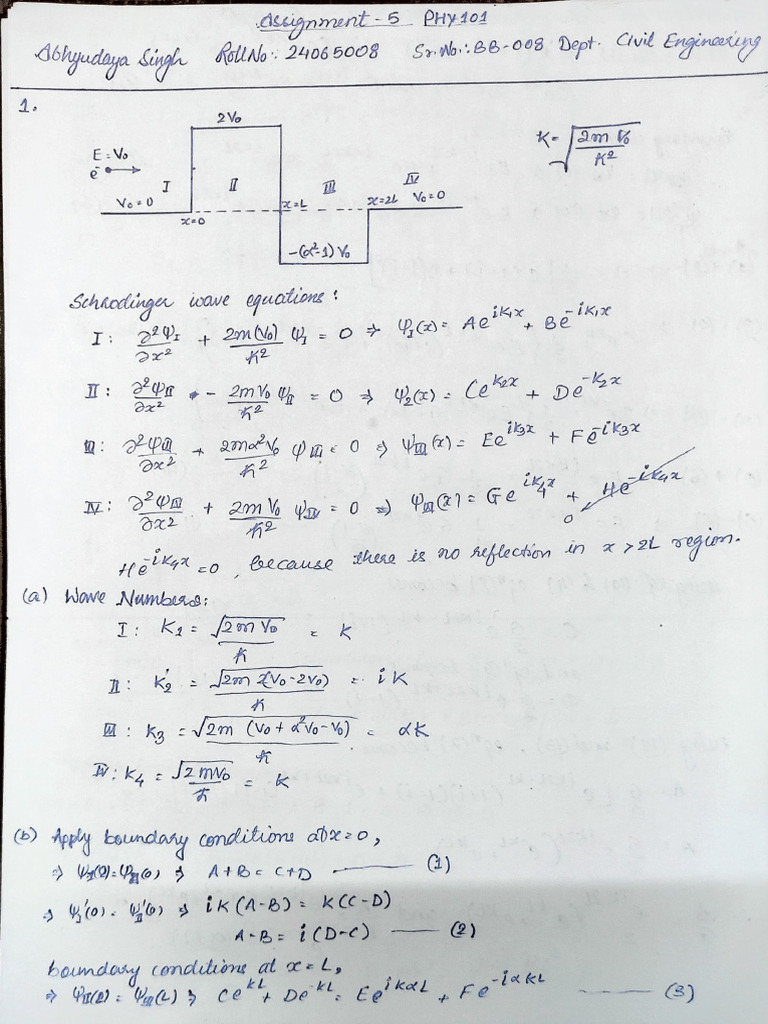 Assignment - 5 PHY101
Abhyudaya Singh Roll No: 24065008 Sr. No.: BB-008 Dept. Civil Engineering
1.
2V₀
K = √(2m V₀/ħ²)
E = V₀
e⁻
I II III IV
V₀ = 0 x=0 x=L x=2L V₀=0
-(α²-1) V₀
Schrodinger wave equations:
I: ∂²Ψ_I/∂x² + 2m(V₀)/ħ² Ψ_I = 0 ⇒ Ψ_I(x) = Ae^{ik₁x} + Be^{-ik₁x}
II: ∂²Ψ_II/∂x² - 2mV₀/ħ² Ψ_II = 0 ⇒ Ψ₂(x) = Ce^{k₂x} + De^{-k₂x}
III: ∂²Ψ_III/∂x² + 2mα²V₀/ħ² Ψ_III = 0 ⇒ Ψ_III(x) = Ee^{ik₃x} + Fe^{-ik₃x}
IV: ∂²Ψ_III/∂x² + 2mV₀/ħ² Ψ_IV = 0 ⇒ Ψ_III(x) = Ge^{ik₄x} + He^{-ik₄x}
0
He^{-ik₄x} = 0, because there is no reflection in x > 2L region.
(a) Wave Numbers:
I: K₁ = √(2mV₀)/ħ = K
II: K₂' = √(2m (V₀-2V₀))/ħ = iK
III: K₃ = √(2m (V₀+α²V₀-V₀))/ħ = αK
IV: K₄ = √(2mV₀)/ħ = K
(b) Apply boundary conditions at x=0,
⇒ Ψ_I(0) = Ψ_II(0) ⇒ A+B = C+D (1)
⇒ Ψ_I'(0) = Ψ_II'(0) ⇒ iK(A-B) = K(C-D)
A-B = i(D-C) (2)
boundary conditions at x=L,
⇒ Ψ_II(L) = Ψ_III(L) ⇒ Ce^{kL} + De^{-kL} = Ee^{ikαL} + Fe^{-iαkL} (3)